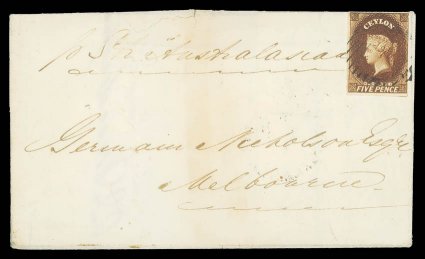 p Str "Australasian"
CEYLON
FIVE PENCE
Germain Nicholson Esqre
Melbourne